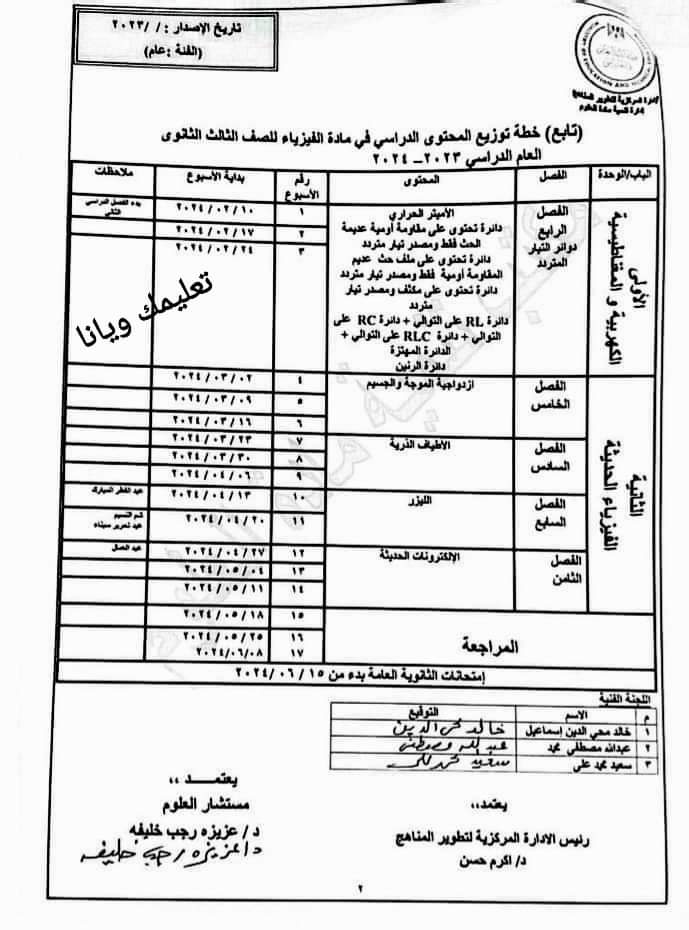 تاريخ الإصدار : / /٢٠٢٣
(الفئة :عام)
الادارة المركزية لتطوير المناهج
إدارة تنمية مادة العلوم
(تابع) خطة توزيع المحتوى الدراسي في مادة الفيزياء للصف الثالث الثانوى
العام الدراسي ٢٠٢٣ – ٢٠٢٤
الباب/الوحدة الفصل المحتوى رقم الأسبوع بداية الأسبوع ملاحظات
الأولى
الكهربية و المغناطيسية
الفصل
الرابع
دوائر التيار
المتردد
الأميتر الحراري
دائرة تحتوى على مقاومة أومية عديمة
الحث فقط ومصدر تيار متردد
دائرة تحتوى على ملف حث عديم
المقاومة أومية فقط ومصدر تيار متردد
دائرة تحتوى على مكثف ومصدر تيار
متردد
دائرة RL على التوالي + دائرة RC على
التوالي + دائرة RLC على التوالي +
الدائرة المهتزة
دائرة الرنين
١ ٢٠٢٤ /٠٢ /١٠ بدء الفصل الدراسي الثاني
٢ ٢٠٢٤ /٠٢ /١٧
٣ ٢٠٢٤ /٠٢ /٢٤
تعليمك ويانا
الثانية
الفيزياء الحديثة
الفصل
الخامس
ازدواجية الموجة والجسيم
٤ ٢٠٢٤ /٠٣ /٠٢
٥ ٢٠٢٤ /٠٣ /٠٩
٦ ٢٠٢٤ /٠٣ /١٦
الفصل
السادس
الأطياف الذرية
٧ ٢٠٢٤ /٠٣ /٢٣
٨ ٢٠٢٤ /٠٣ /٣٠
٩ ٢٠٢٤ /٠٤ /٠٦
الفصل
السابع
الليزر
١٠ ٢٠٢٤ /٠٤ /١٣ عيد الفطر المبارك
١١ ٢٠٢٤ /٠٤ /٢٠ شم النسيم
عيد تحرير سيناء
الفصل
الثامن
الإلكترونات الحديثة
١٢ ٢٠٢٤ /٠٤ /٢٧ عيد العمال
١٣ ٢٠٢٤ /٠٥ /٠٤
١٤ ٢٠٢٤ /٠٥ /١١
المراجعة
١٥ ٢٠٢٤ /٠٥ /١٨
١٦ ٢٠٢٤ /٠٥ /٢٥
١٧ ٢٠٢٤/٠٦/٠٨
إمتحانات الثانوية العامة بدء من ١٥ / ٠٦ /٢٠٢٤
اللجنة الفنية
م الاسم التوقيع
١ خالد محي الدين إسماعيل خالد محي الدين
٢ عبدالله مصطفى محمد عبدالله مصطفى
٣ سعيد محمد على سعيد محمد على
يعتمد،،
رئيس الادارة المركزية لتطوير المناهج
د/ اكرم حسن
يعتمـــد ،،
مستشار العلوم
د/ عزيزه رجب خليفه
د/ عزيزه رجب خليفه
٢